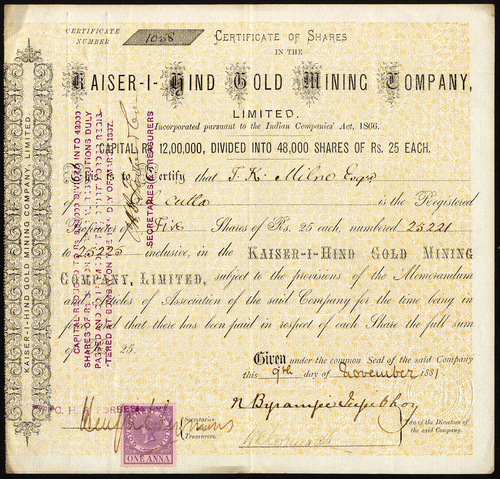 CERTIFICATE
NUMBER
1058
CERTIFICATE OF SHARES
IN THE
KAISER-I-HIND GOLD MINING COMPANY,
LIMITED.
Incorporated pursuant to the Indian Companies' Act, 1866.
CAPITAL RS 12,00,000, DIVIDED INTO 48,000 SHARES OF RS. 25 EACH.
This is to Certify that F. K. Milne Esqr
of culla is the Registered
Proprietor of Five Shares of Rs. 25 each, numbered 25221
to 25225 inclusive, in the KAISER-I-HIND GOLD MINING
COMPANY, LIMITED, subject to the provisions of the Memorandum
and Articles of Association of the said Company for the time being in
force and that there has been paid in respect of each Share the full sum
of 25.
Given under the common Seal of the said Company
this 9th day of November 1881
Secretaries
Treasurers.
of the Directors of
the said Company.
ONE ANNA
KAISER-I-HIND GOLD MINING COMPANY, LIMITED.
CAPITAL INTO 48000
SHARES OF DULY
PASSED AND
DAY OF
SECRETARIES & TREASURERS